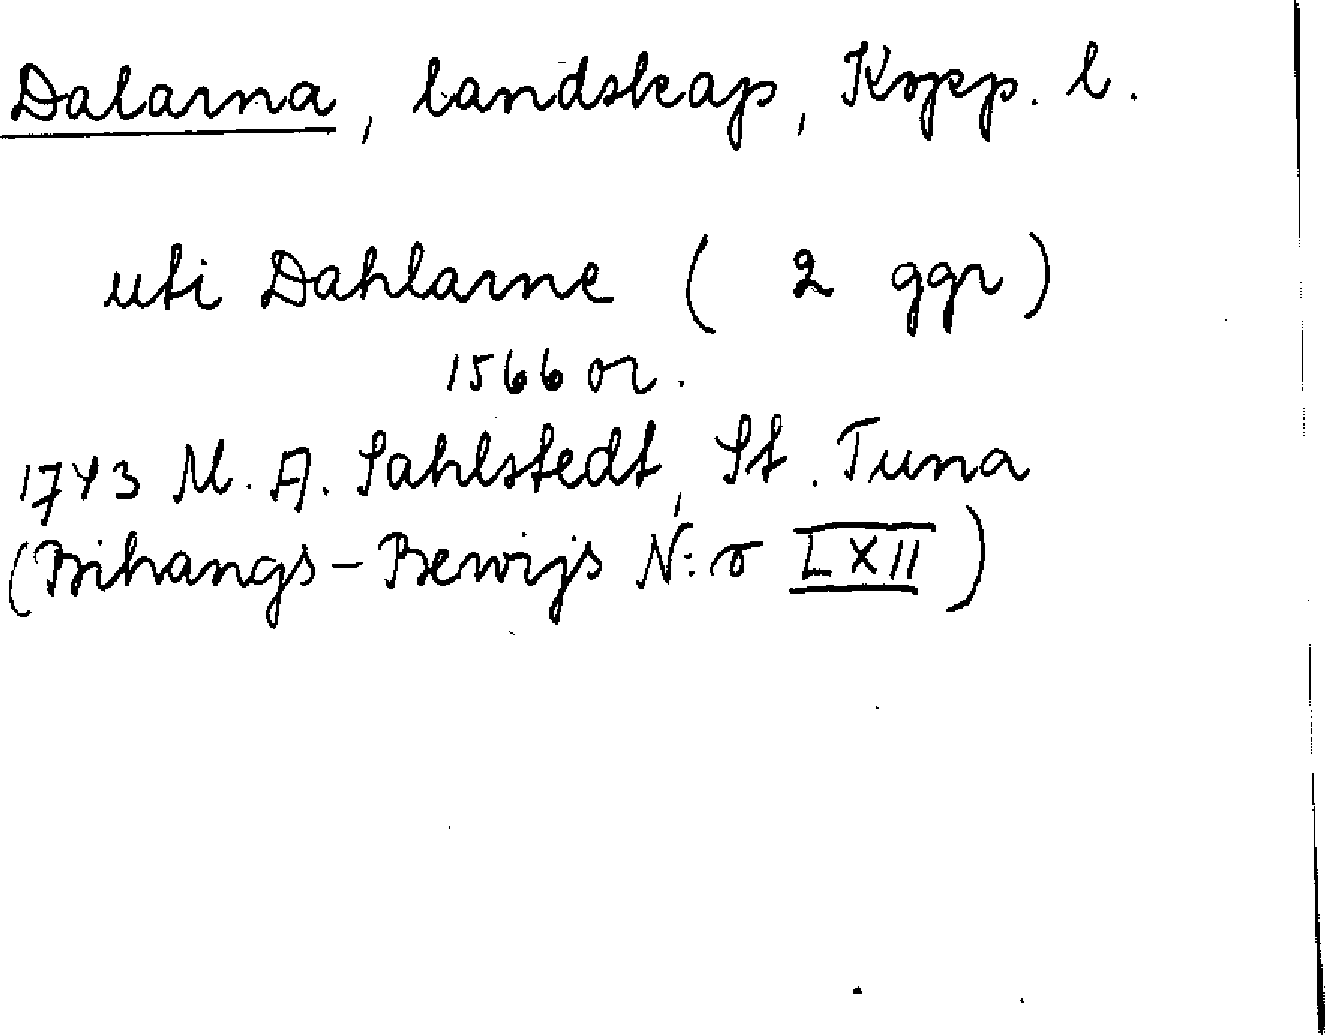 Dalarna, landskap, Kopp. l.
uti Dahlarne ( 2 ggr)
1566 or.
1743 M. A. Sahlstedt, St. Tuna
(Bihangs-Bewijs N:o LXII)